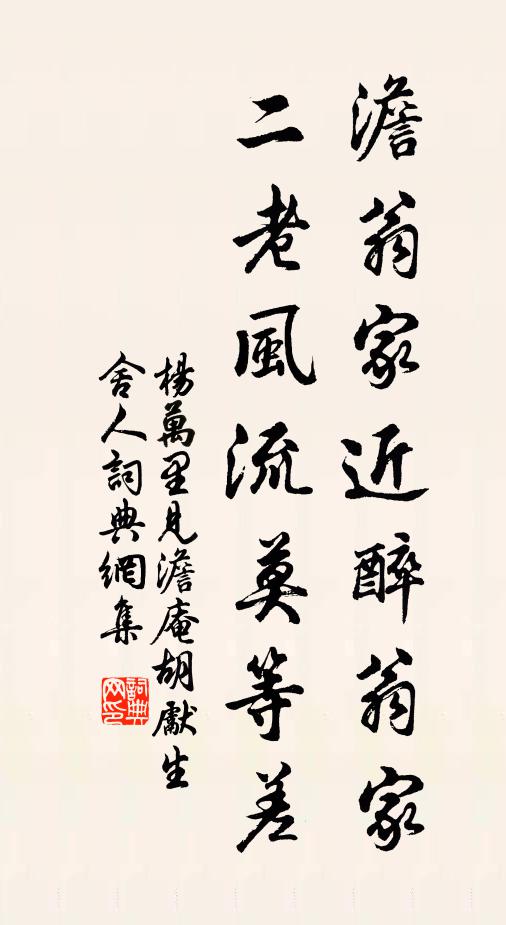 澹翁家近醉翁家
二老風流莫等差
楊萬里見澹庵胡獻生
舍人詞典網集
詞典
网印